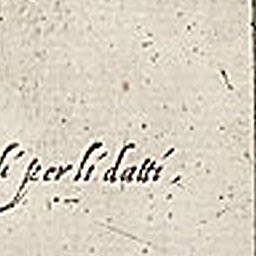 li per li datti,